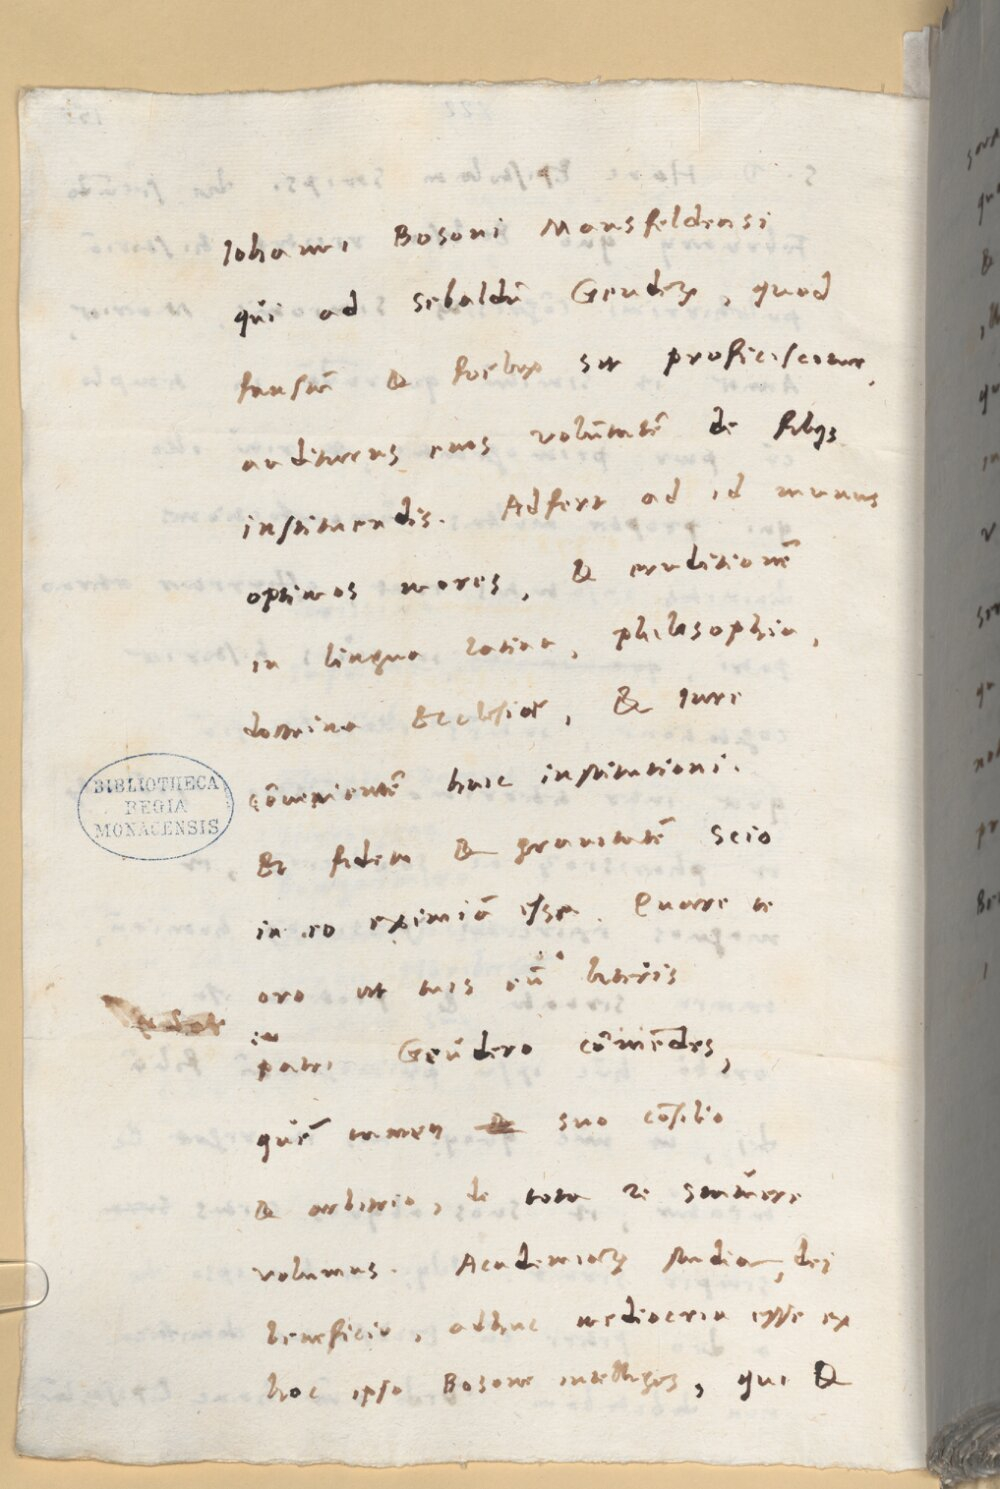 Iohanni Bosoni Mansfeldensi
qui ad Sebaldū Geuderū, quod
faustū & foelix sit proficiscitur,
auditurus eius volūtatē de filijs
instituendis. Adfert ad id munus
optimos mores, & eruditionē
in lingua latina, philosophia,
doctrina Ecclesiae, & iure
cōuenientē huic institutioni.
Et fidem & grauitatē scio
in eo eximiā esse. Quare te
oro ut tuis eū literis
patri Geūdero cōmēdes,
quē tamen suo cōsilio
& arbitrio, de tota re statuere
volumus. Academiarū studia, dei
beneficio, adhuc mediocria esse ex
hoc ipso Bosone intelliges, qui &
BIBLIOTHECA
REGIA
MONACENSIS